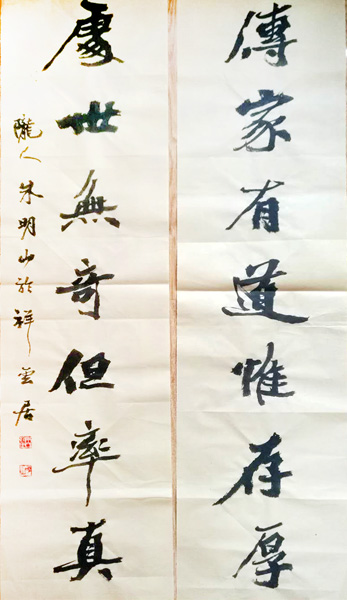 傳家有道惟存厚
處世無奇但率真
隴人朱明山於祥雲居